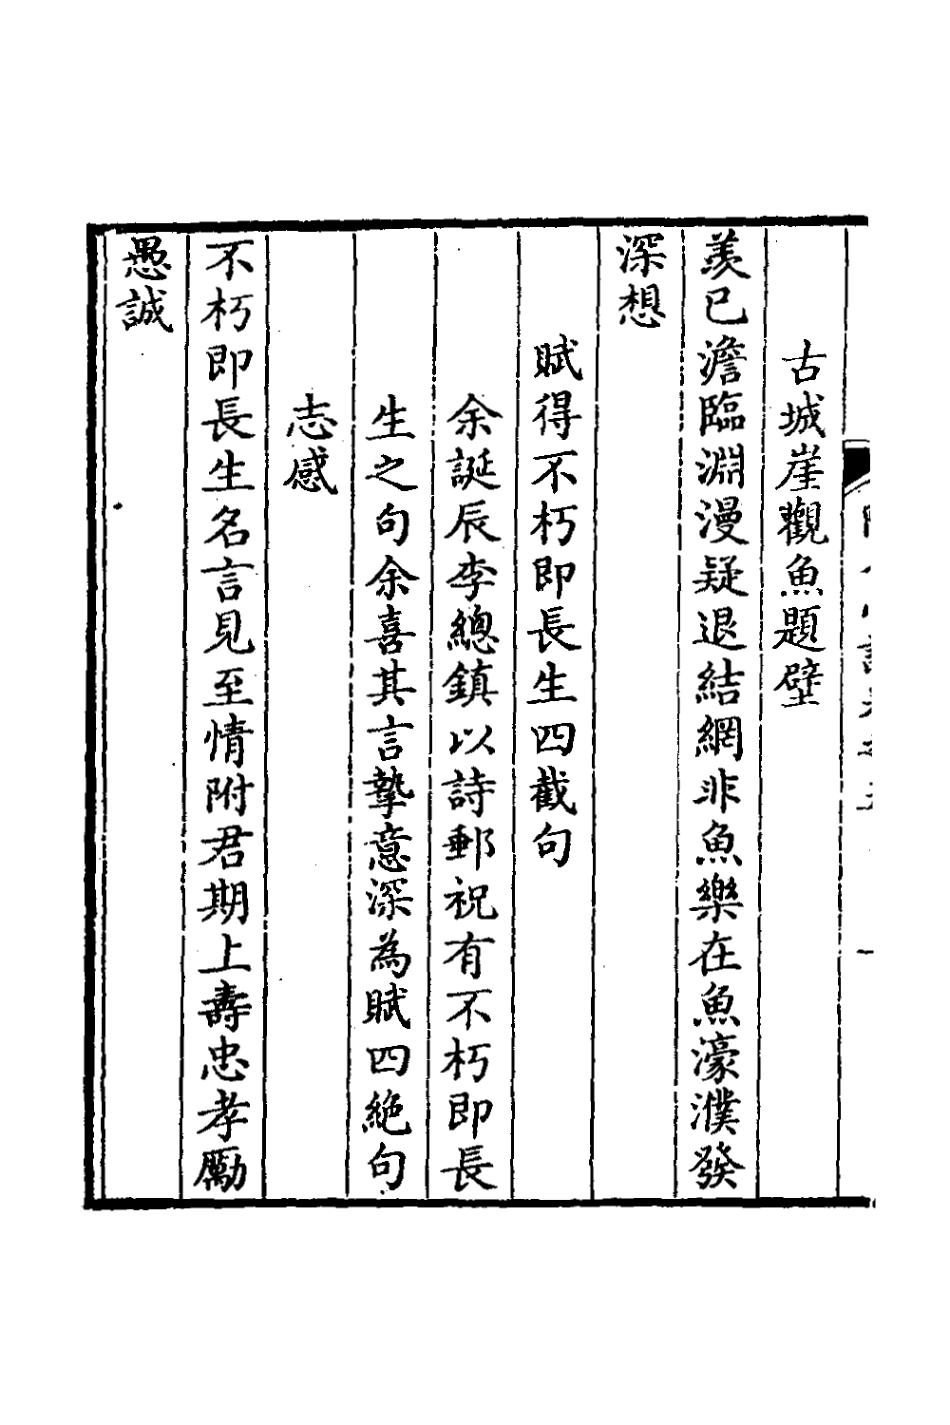 古城崖觀魚題壁
羨已澹臨淵漫疑退結網非魚樂在魚濠濮發
深想
賦得不朽即長生四截句
余誕辰李總鎮以詩郵祝有不朽即長
生之句余喜其言摯意深為賦四絶句
志感
不朽即長生名言見至情附君期上壽忠孝勵
愚誠